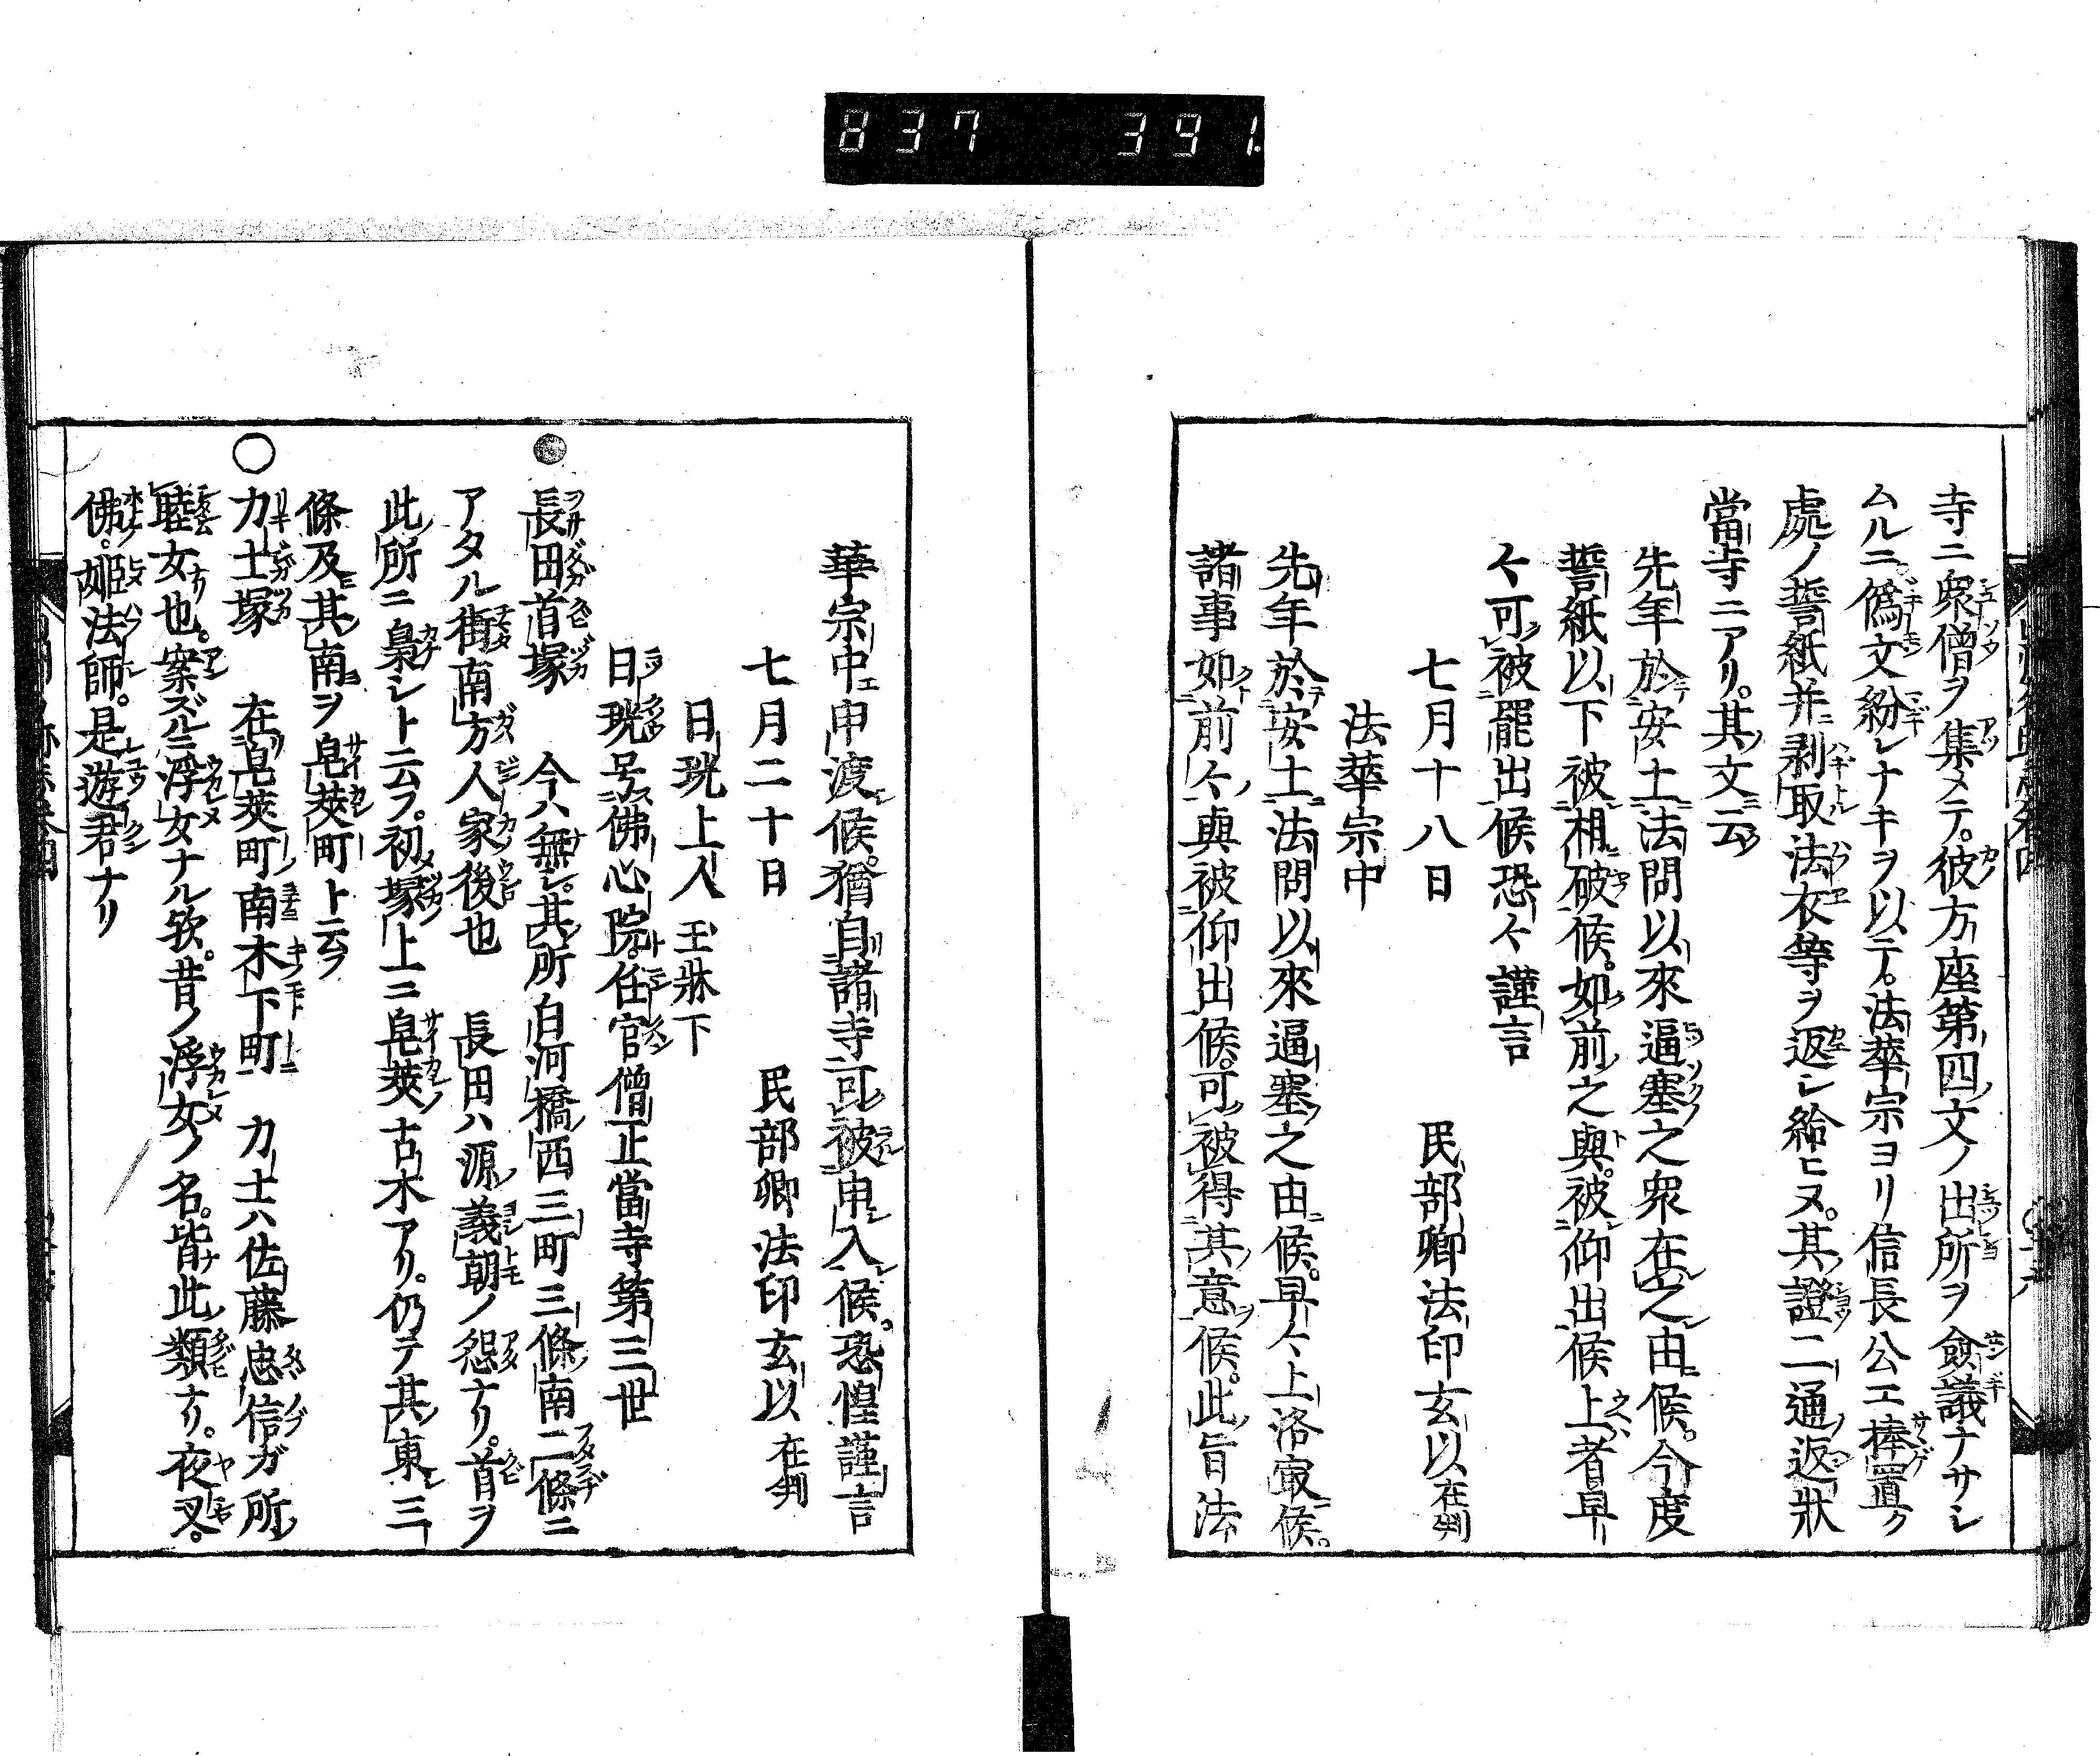 837 391
寺ニ衆僧ヲ集メテ。彼方座第四文ノ出所ヲ僉議ナサシ
ムルニ僞文紛レナキヲ以テ。法華宗ヨリ信長公エ捧置ク
處ノ誓紙并ニ剥取法衣等ヲ返シ給ヒヌ。其證二通返狀
當寺ニアリ。其文云
先年於安土法問以來逼塞之衆在之由候。今度
誓紙以下被相破候。如前之與。被仰出候上者早
々可被罷出候恐々謹言
七月十八日 民部卿法印玄以在判
法華宗中
先年於安土法問以來逼塞之由候。早々上洛寂候。
諸事如前々與被仰出候。可被得其意候。此旨法
華宗中エ申渡候。猶自諸寺可被申入候。恐惶謹言
七月二十日 民部卿法印玄以 在判
日珖上人 玉牀下
日珖号佛心院。任官僧正當寺第三世
長田首塚 今ハ無シ。其所白河橋西三町三條南二條ニ
アタル街南方人家後也 長田ハ源義朝ノ怨ナリ。首ヲ
此所ニ梟シト云フ。初塚上ニ皂莢古木アリ。仍テ其東三
條及其南ヲ皂莢町ト云フ
○力士塚 在皂莢町南木下町 力士ハ佐藤忠信ガ所
睦女也。案ズルニ浮女ナル欤。昔ノ浮女ノ名。皆此類ナリ。夜叉。
佛。姫法師。是遊君ナリ